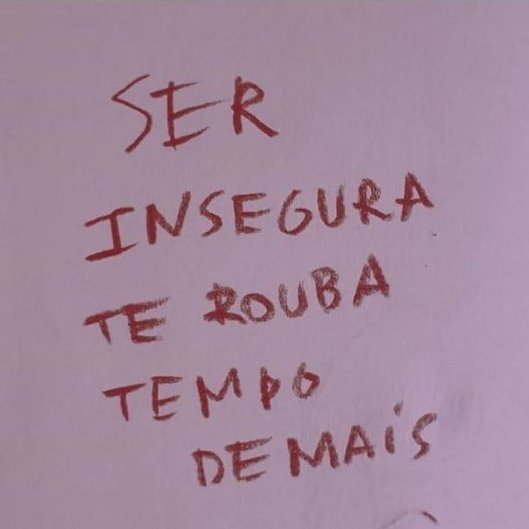 SER
INSEGURA
TE ROUBA
TEMPO
DEMAiS